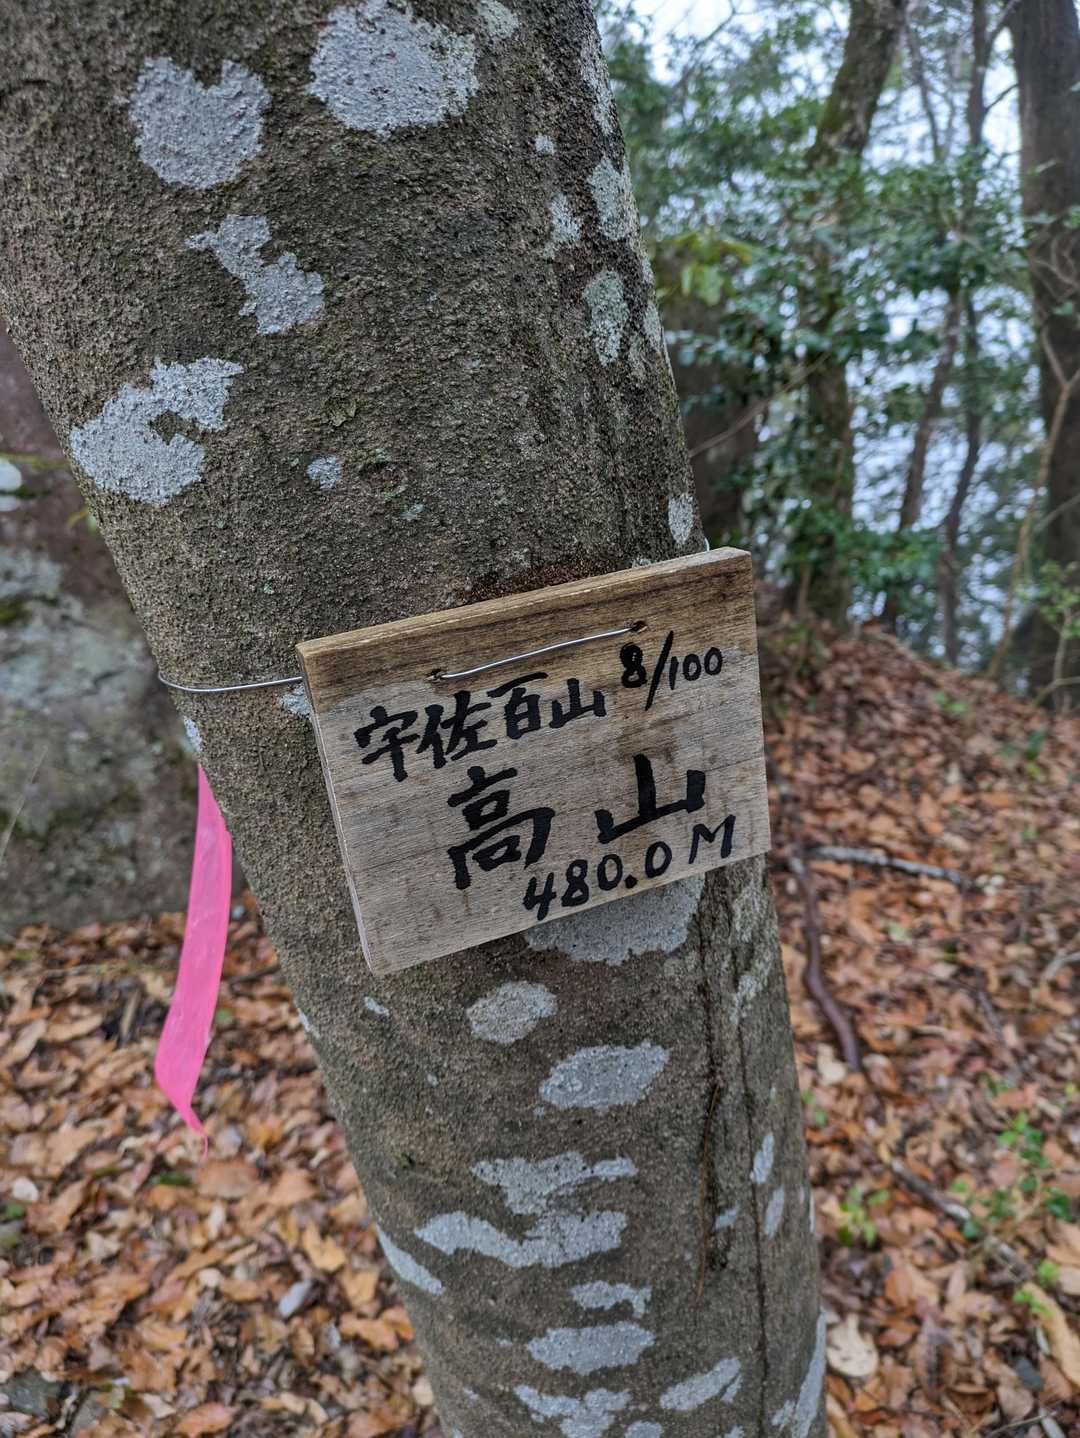 宇佐百山 8/100
高山
480.0M